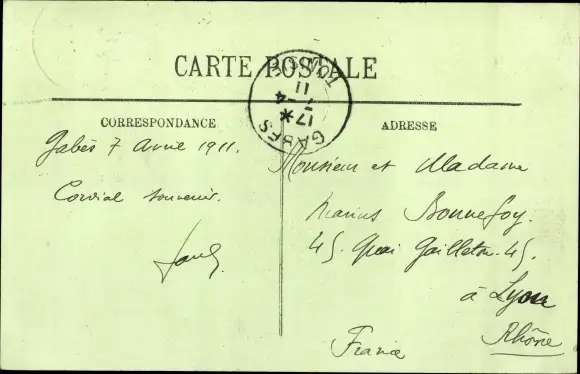 CARTE POSTALE
CORRESPONDANCE
Gabès 7 Avril 1911.
Cordial souvenir.
ADRESSE
Monsieur et Madame
Marius Bonnefoy.
45. Quai Gailleton. 45.
à Lyon
Rhône
France
GABES
17* -4
11